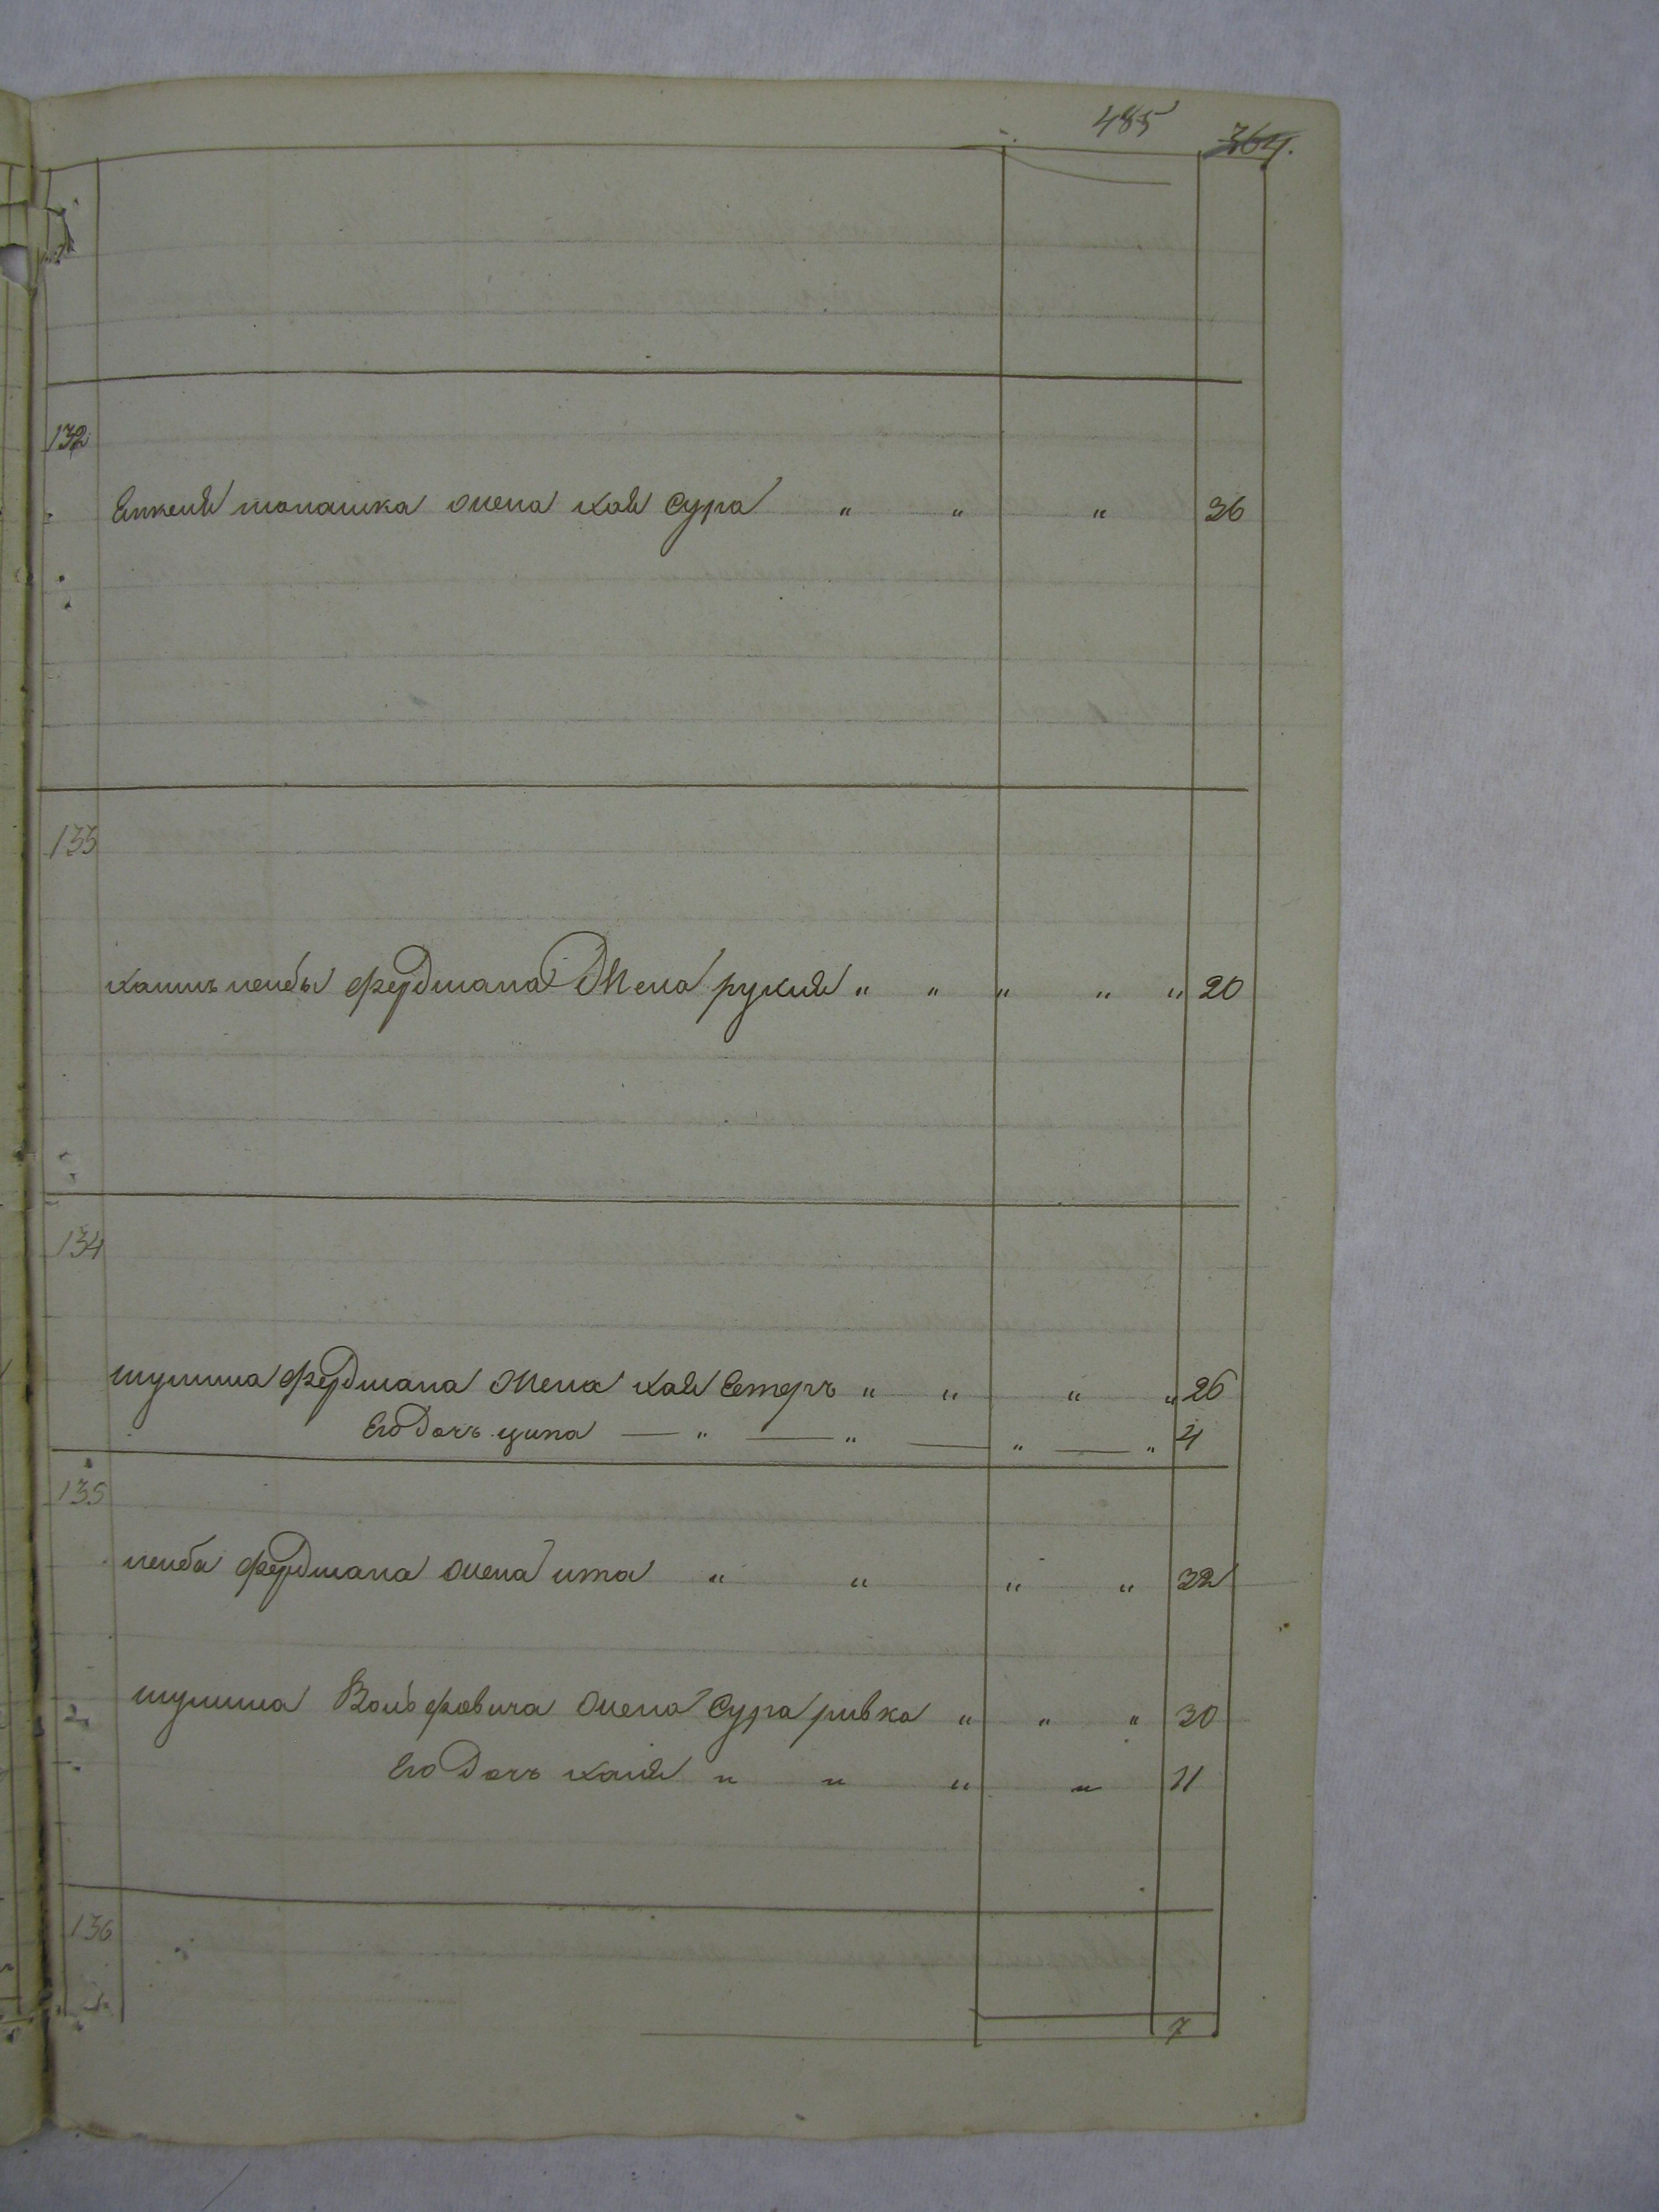 485 364.
132
жена хая Сура " " " 36
133
лейбы фердмана Жена рухля " " " " " 20
134
шулима фердмана Жена хая Естеръ " " " " 26
Его дочь ципа — " — " — " — " 4
135
лейба фердмана жена ита " " " " 32
шулима Вольфовича жена Сура ривка " " " 30
Его дочь хая " " " " 11
136
7